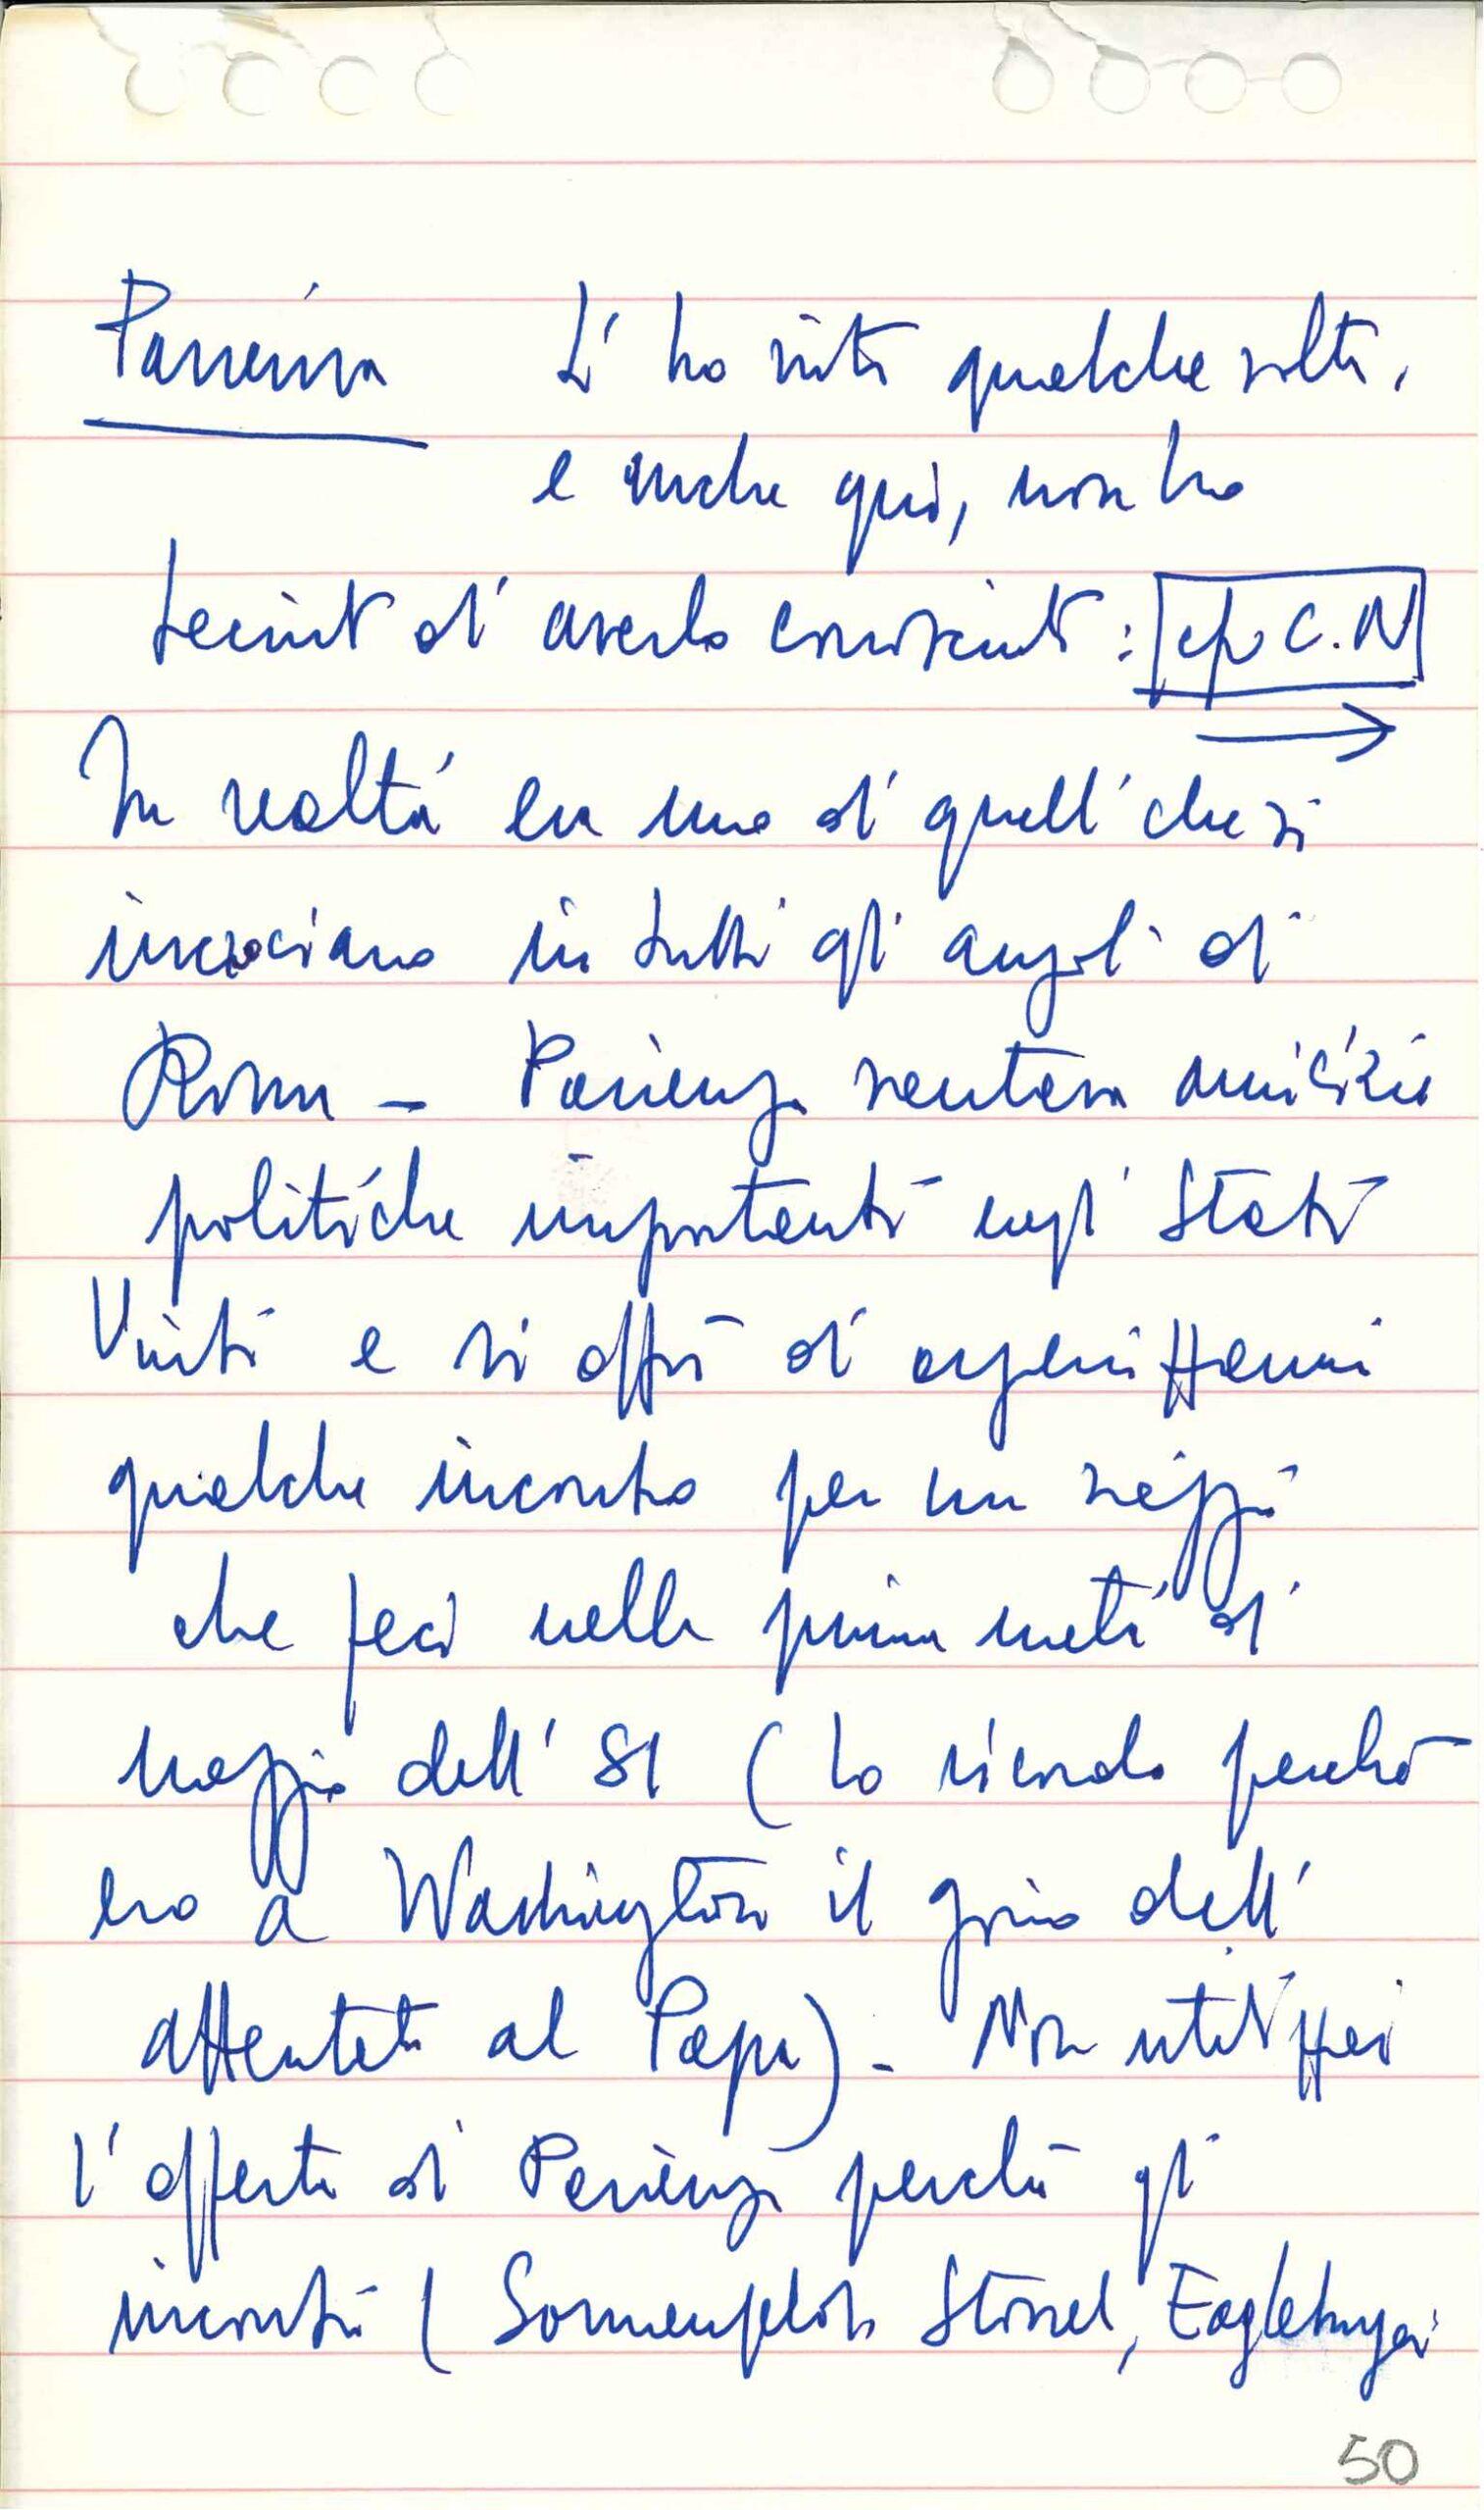 Pazienza L'ho visto qualche volta,
e anche qui, non ho
taciuto di averlo conosciuto: cfr C.N
In realtà era uno di quelli che si
incrociano in tutti gli angoli di
Roma - Pazienza vantava amicizie
politiche importanti negli Stati
Uniti e si offrì di organizzarmi
qualche incontro per un viaggio
che feci nella prima metà di
maggio dell' 81 (lo ricordo perché
ero a Washington il giorno dell'
attentato al Papa) - Non utilizzai
l'offerta di Pazienza perché gli
incontri (Sonnenfeldt, Stoessel, Eagleburger
50